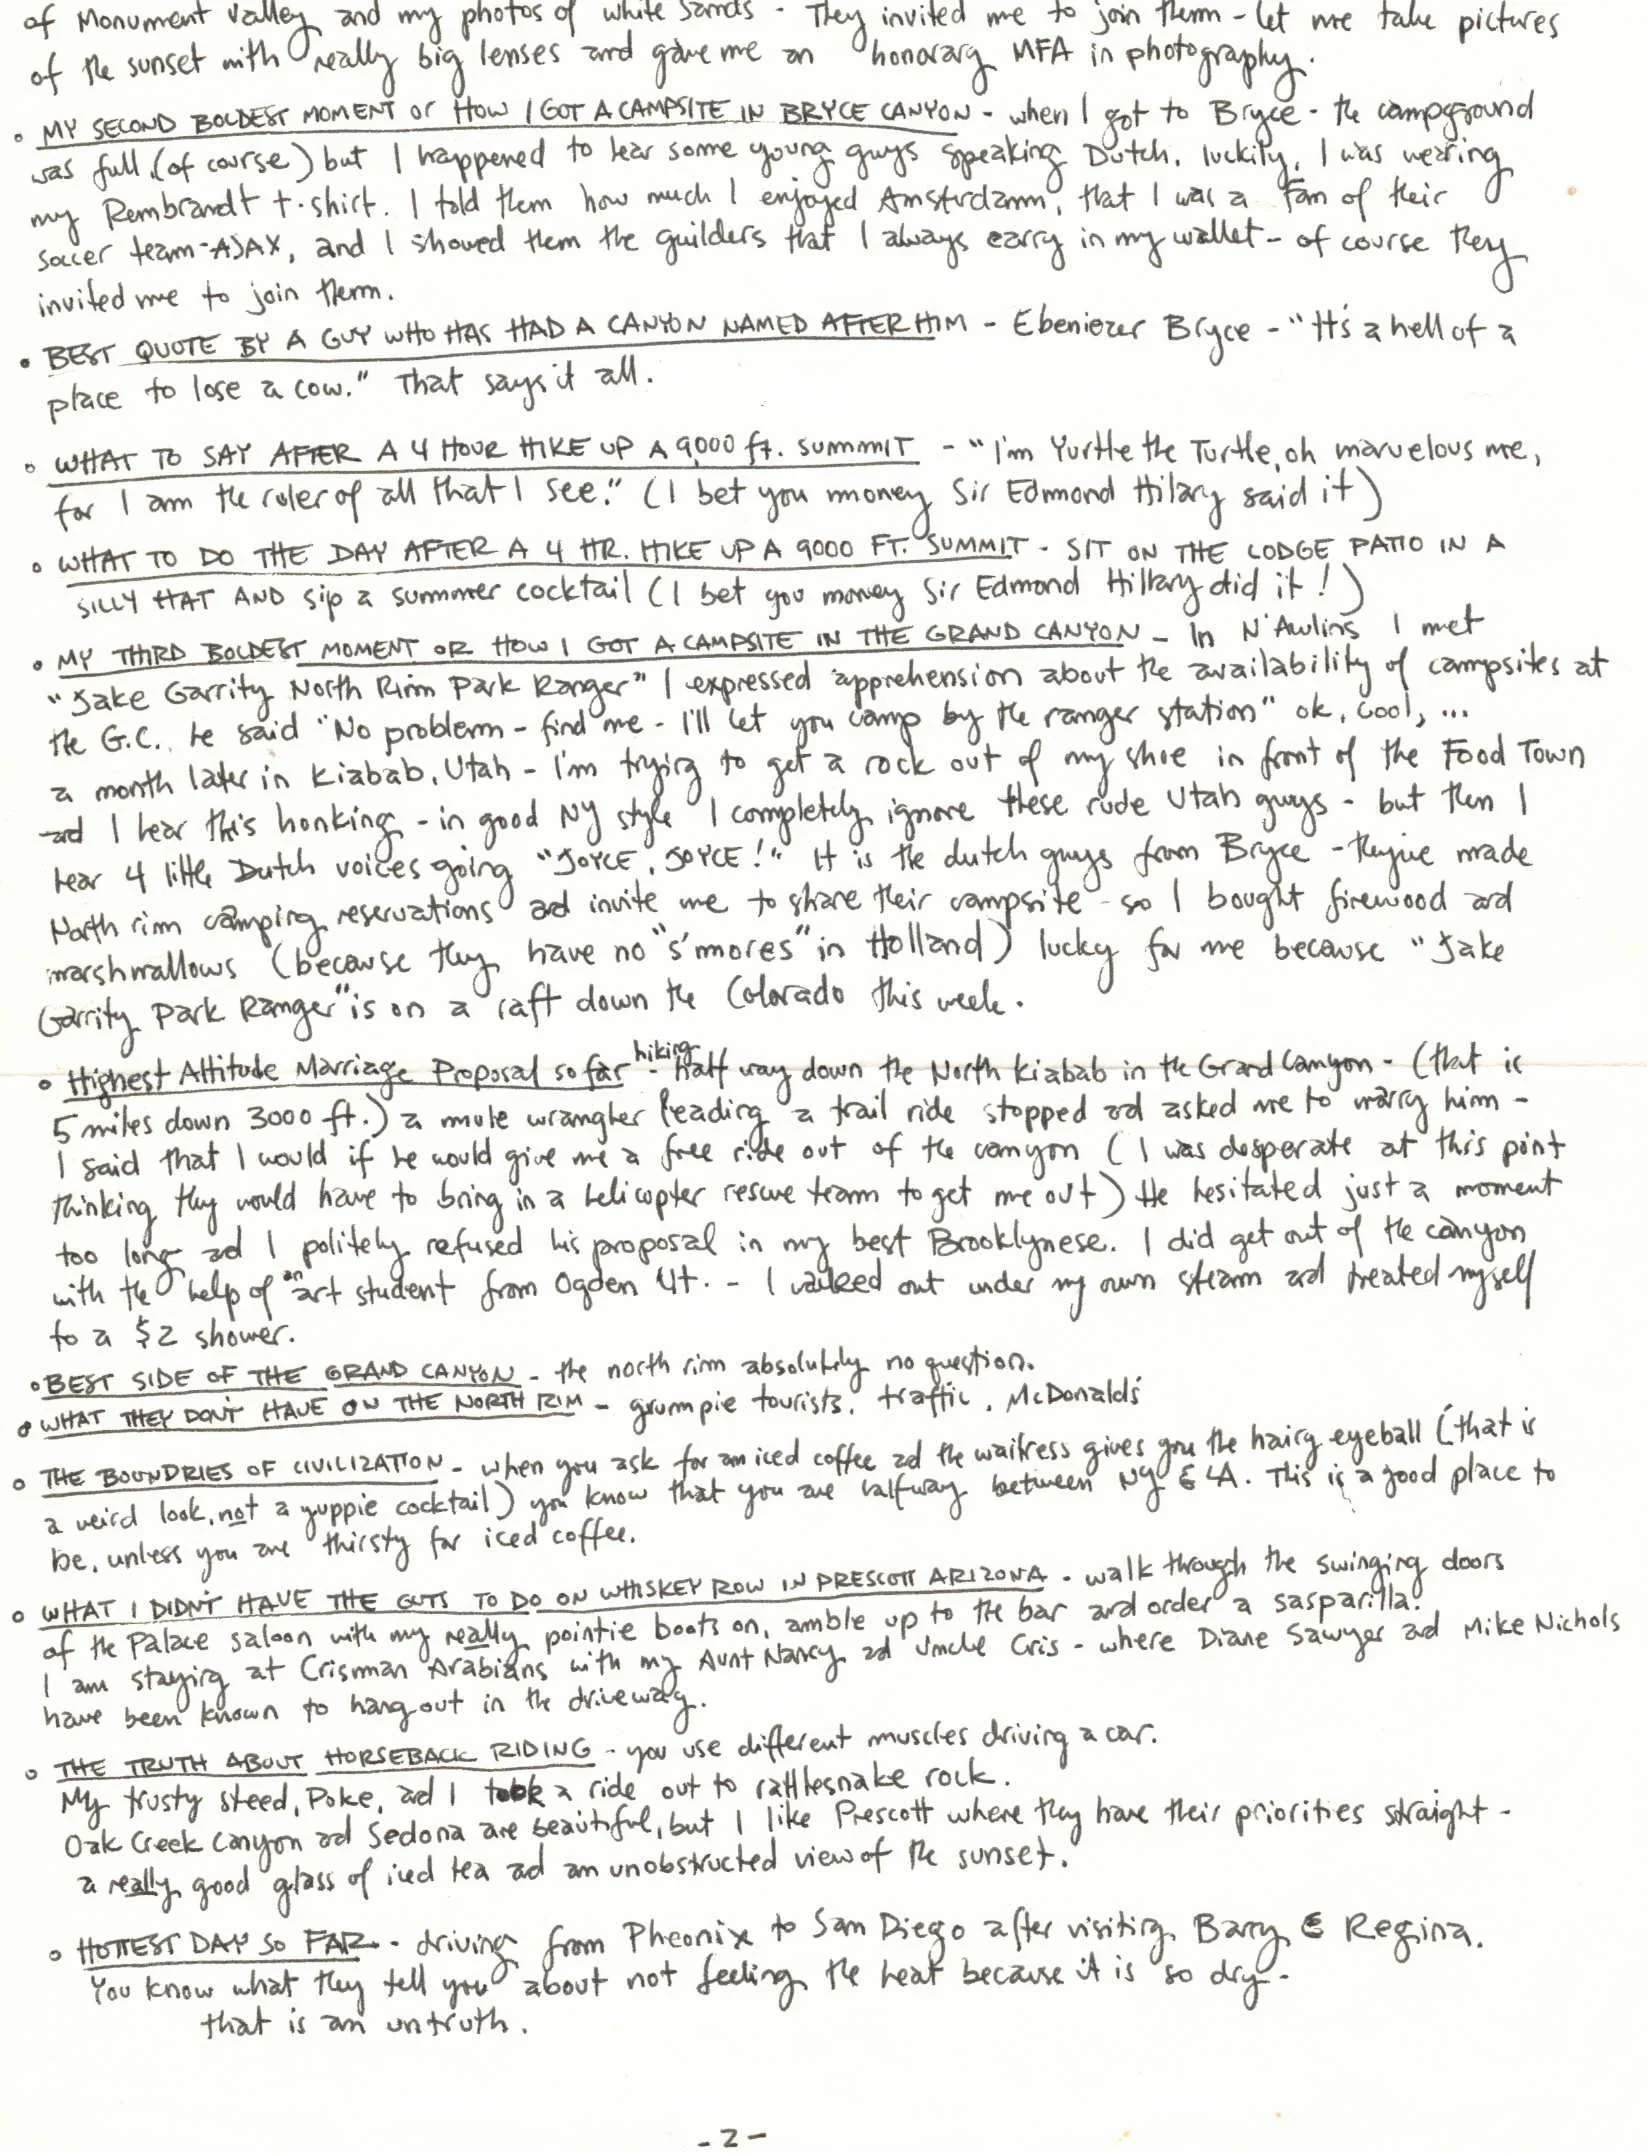 of Monument Valley and my photos of white Sands - They invited me to join them - let me take pictures
of the sunset with really big lenses and gave me an honorary MFA in photography.
• MY SECOND BOLDEST MOMENT or HOW I GOT A CAMPSITE IN BRYCE CANYON - when I got to Bryce - the campground
was full (of course) but I happened to hear some young guys speaking Dutch. luckily, I was wearing
my Rembrandt t-shirt. I told them how much I enjoyed Amsterdam, that I was a fan of their
soccer team-AJAX, and I showed them the guilders that I always carry in my wallet - of course they
invited me to join them.
• BEST QUOTE BY A GUY WHO HAS HAD A CANYON NAMED AFTER HIM - Ebeniezer Bryce - "It's a hell of a
place to lose a cow." That says it all.
• WHAT TO SAY AFTER A 4 HOUR HIKE UP A 9,000 ft. SUMMIT - "I'm Yurtle the Turtle, oh marvelous me,
for I am the ruler of all that I see." (I bet you money Sir Edmond Hilary said it)
• WHAT TO DO THE DAY AFTER A 4 HR. HIKE UP A 9000 FT. SUMMIT - SIT ON THE LODGE PATIO IN A
SILLY HAT AND sip a summer cocktail (I bet you money Sir Edmond Hillary did it!)
• MY THIRD BOLDEST MOMENT OR HOW I GOT A CAMPSITE IN THE GRAND CANYON - In N'Awlins I met
"Jake Garrity North Rim Park Ranger" I expressed apprehension about the availability of campsites at
the G.C. he said "No problem - find me - I'll let you camp by the ranger station" ok, cool, ...
a month later in Kiabab, Utah - I'm trying to get a rock out of my shoe in front of the Food Town
and I hear this honking - in good NY style I completely ignore these rude Utah guys - but then I
hear 4 little Dutch voices going "JOYCE, JOYCE!" It is the dutch guys from Bryce - they've made
North rim camping reservations and invite me to share their campsite - so I bought firewood and
marshmallows (because they have no "s'mores" in Holland) lucky for me because "Jake
Garrity Park Ranger" is on a raft down the Colorado this week.
• Highest Altitude Marriage Proposal so far - hiking half way down the North Kiabab in the Grand Canyon - (that is
5 miles down 3000 ft.) a mule wrangler leading a trail ride stopped and asked me to marry him -
I said that I would if he would give me a free ride out of the canyon (I was desperate at this point
thinking they would have to bring in a helicopter rescue team to get me out) He hesitated just a moment
too long and I politely refused his proposal in my best Brooklynese. I did get out of the canyon
with the help of an art student from Ogden Ut. - I walked out under my own steam and treated myself
to a $2 shower.
• BEST SIDE OF THE GRAND CANYON - the north rim absolutely no question.
• WHAT THEY DON'T HAVE ON THE NORTH RIM - grumpie tourists, traffic, McDonald's
• THE BOUNDRIES OF CIVILIZATION - when you ask for an iced coffee and the waitress gives you the hairy eyeball (that is
a weird look, not a yuppie cocktail) you know that you are halfway between NY & LA. This is a good place to
be, unless you are thirsty for iced coffee.
• WHAT I DIDN'T HAVE THE GUTS TO DO ON WHISKEY ROW IN PRESCOTT ARIZONA - walk through the swinging doors
of the Palace saloon with my really pointie boots on, amble up to the bar and order a sasparilla.
I am staying at Crisman Arabians with my Aunt Nancy and Uncle Cris - where Diane Sawyer and Mike Nichols
have been known to hang out in the driveway.
• THE TRUTH ABOUT HORSEBACK RIDING - you use different muscles driving a car.
My trusty steed, Poke, and I took a ride out to rattlesnake rock.
Oak Creek Canyon and Sedona are beautiful, but I like Prescott where they have their priorities straight -
a really good glass of iced tea and an unobstructed view of the sunset.
• HOTTEST DAY SO FAR - driving from Pheonix to San Diego after visiting Barry & Regina.
You know what they tell you about not feeling the heat because it is so dry -
that is an untruth.
- 2 -